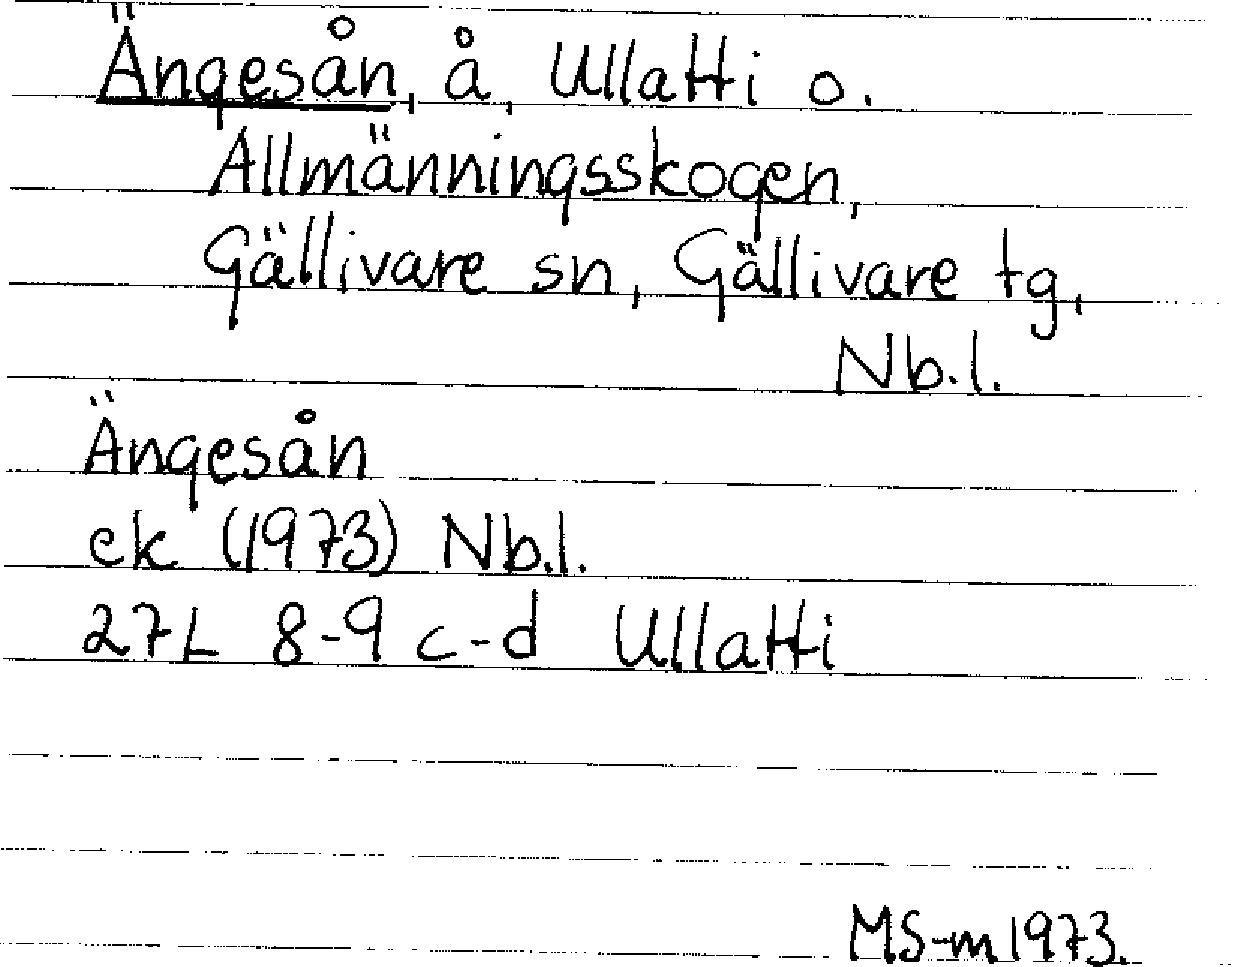 Ängesån, å, Ullatti o.
Allmänningsskogen,
Gällivare sn, Gällivare tg,
Nb.l.
Ängesån
ek (1973) Nb.l.
27L 8-9 c-d Ullatti
MS-m 1973.